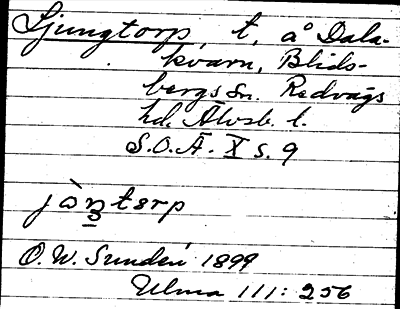 Ljungtorp, t, å Dala-
kvarn, Blids-
bergs sn. Redvägs
hd. Älvsb. l.
S.O.Ä. X s. 9
O. W. Sundén 1899
Ulma 111: 256